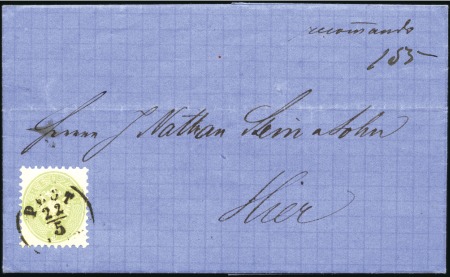 recommando
185
Herrn J Nathan Stein & Sohn
Hier
PEST
22
5